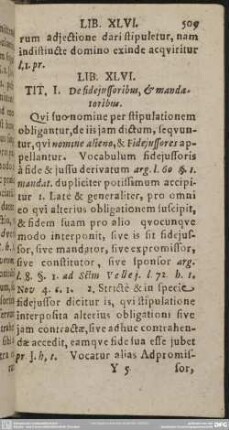 LIB. XLVI. 509
rum adjectione dari stipuletur, nam
indistincte domino exinde acqviritur
l, 1. pr.
LIB. XLVI.
TIT, I. De fidejussoribus, & manda-
toribus.
Qvi suo nomine per stipulationem
obligantur, de iis jam dictum, seqvun-
tur, qvi nomine alieno, & Fidejussores ap-
pellantur. Vocabulum fidejussoris
à fide & jussu derivatum arg. l. 60 §. 1.
mandat. dupliciter potissimum accipi-
tur 1. Late & generaliter, pro omni
eo qvi alterius obligationem suscipit,
& fidem suam pro alio qvocunqve
modo interponit, sive is sit fidejus-
sor, sive mandator, sive expromissor,
sive constitutor, sive sponsor arg.
l. 8. §. 1. ad SCtm Vellej. l. 72 h. t.
Nov 4. c. 1. 2. Strictè & in specie
fidejussor dicitur is, qvi stipulatione
interposita alterius obligationi sive
jam contractæ, sive adhuc contrahen-
dæ accedit, eamqve fide sua esse jubet
pr J. h, t. Vocatur alias Adpromis-
Y 5 sor,